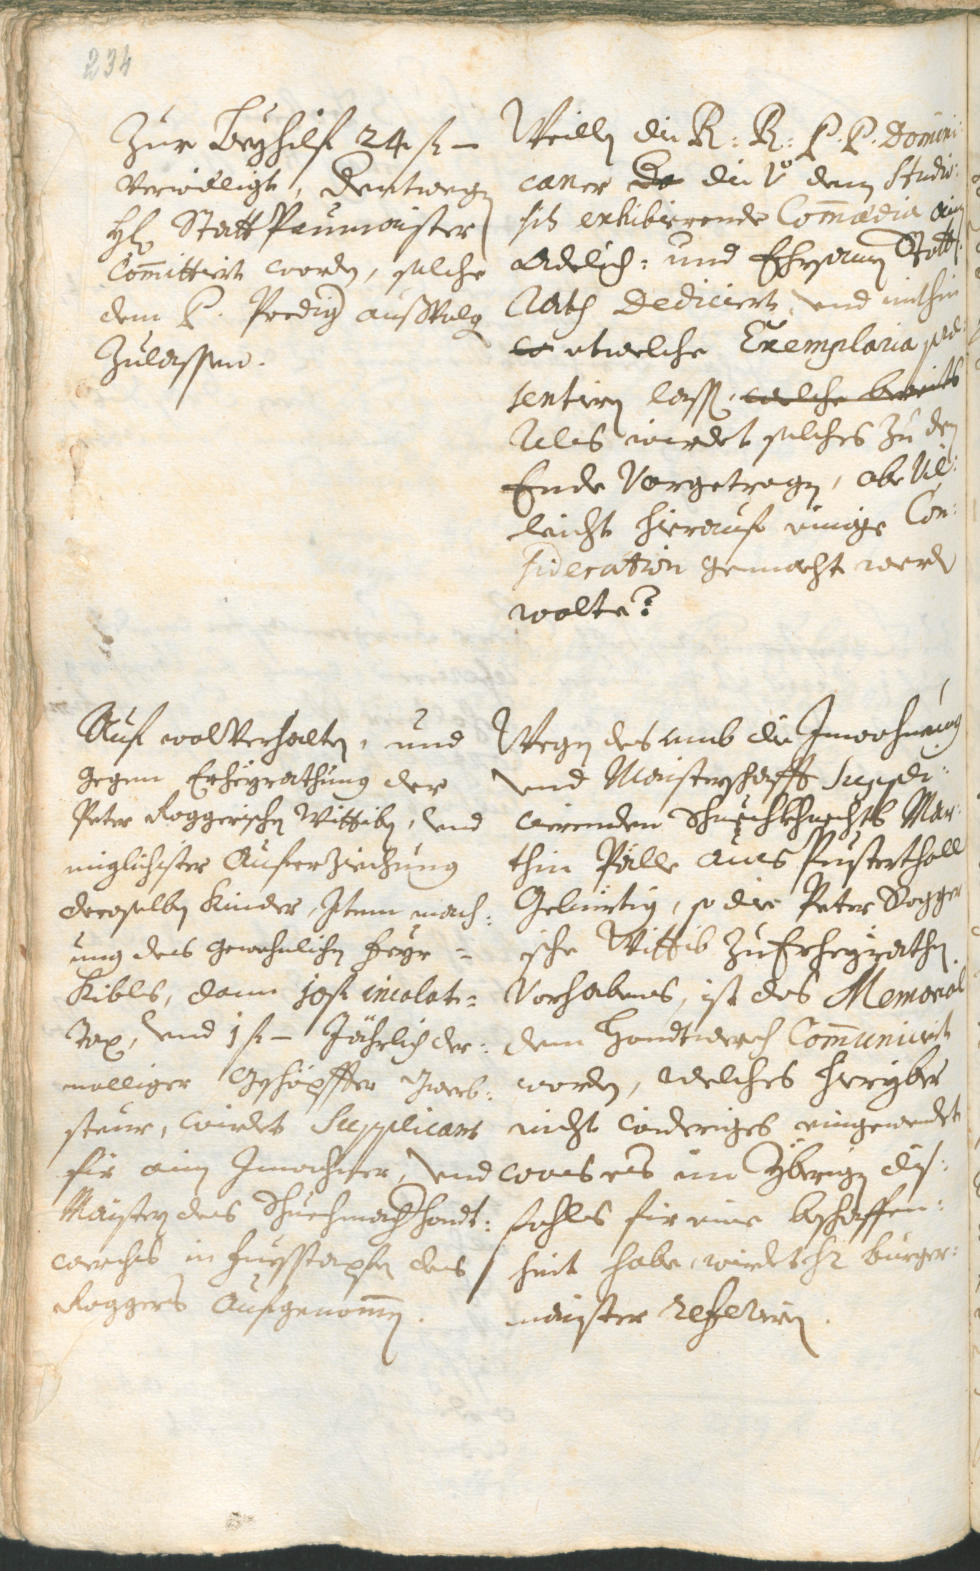 234
Zur Beyhilf 24 fl –
verwilligt, dentwegen
Hl. Statt Paumaister
Committirt worden, solche
dem P. Predig. ausvolgen
Zulassen.
Weillen die R: R: P. P. Domini
caner die Vo den Studio:
sis exhibierende Comœdia ain
Adelich: und Ehrsamen Statt
Rath dediciert, und mithin
etwelche Exemplaria præ
sentirn lassen, welche bereits
Als wirdet solches zu den
Ende Vorgetragen, obe Vil:
leicht hierauf einige Con:
sideration gemacht werden
wolte?
Auf wolverhalten, und
gegen Erheyrathung der
Peter Roggerischen Wittiben, und
miglichister Auferziechung
deroselben Kinder, Item mach:
ung des gewohnlichen Feyr =
Kibls, dann 10 fl incolat=
Tax, und 1 fl – Jährlich der:
malliger Gschöpffter Gwerb:
steur, wirdet Supplicant
fir ain Inwohner, und
Maister des Schuechmacher handt:
werchs in Fuesstapfen des
Roggers Aufgenommen.
Wegen des umb die Inwohnung
und Maisterschafft Suppli:
cierenden Schuechkhnechts Mar:
thin Pälle aus Pusterthall
Gebürtig, so die Peter Rogger
ische Wittib zu Erheyrathen
Vorhabens, ist das Memorial
dem Handtwerch Communicirt
worden, welches hieryber
nicht wideriges eingewendet
was es im Yberigen dis:
fahls fir eine beschaffen:
heit habe, wirdet Hr Burger:
maister referirn.